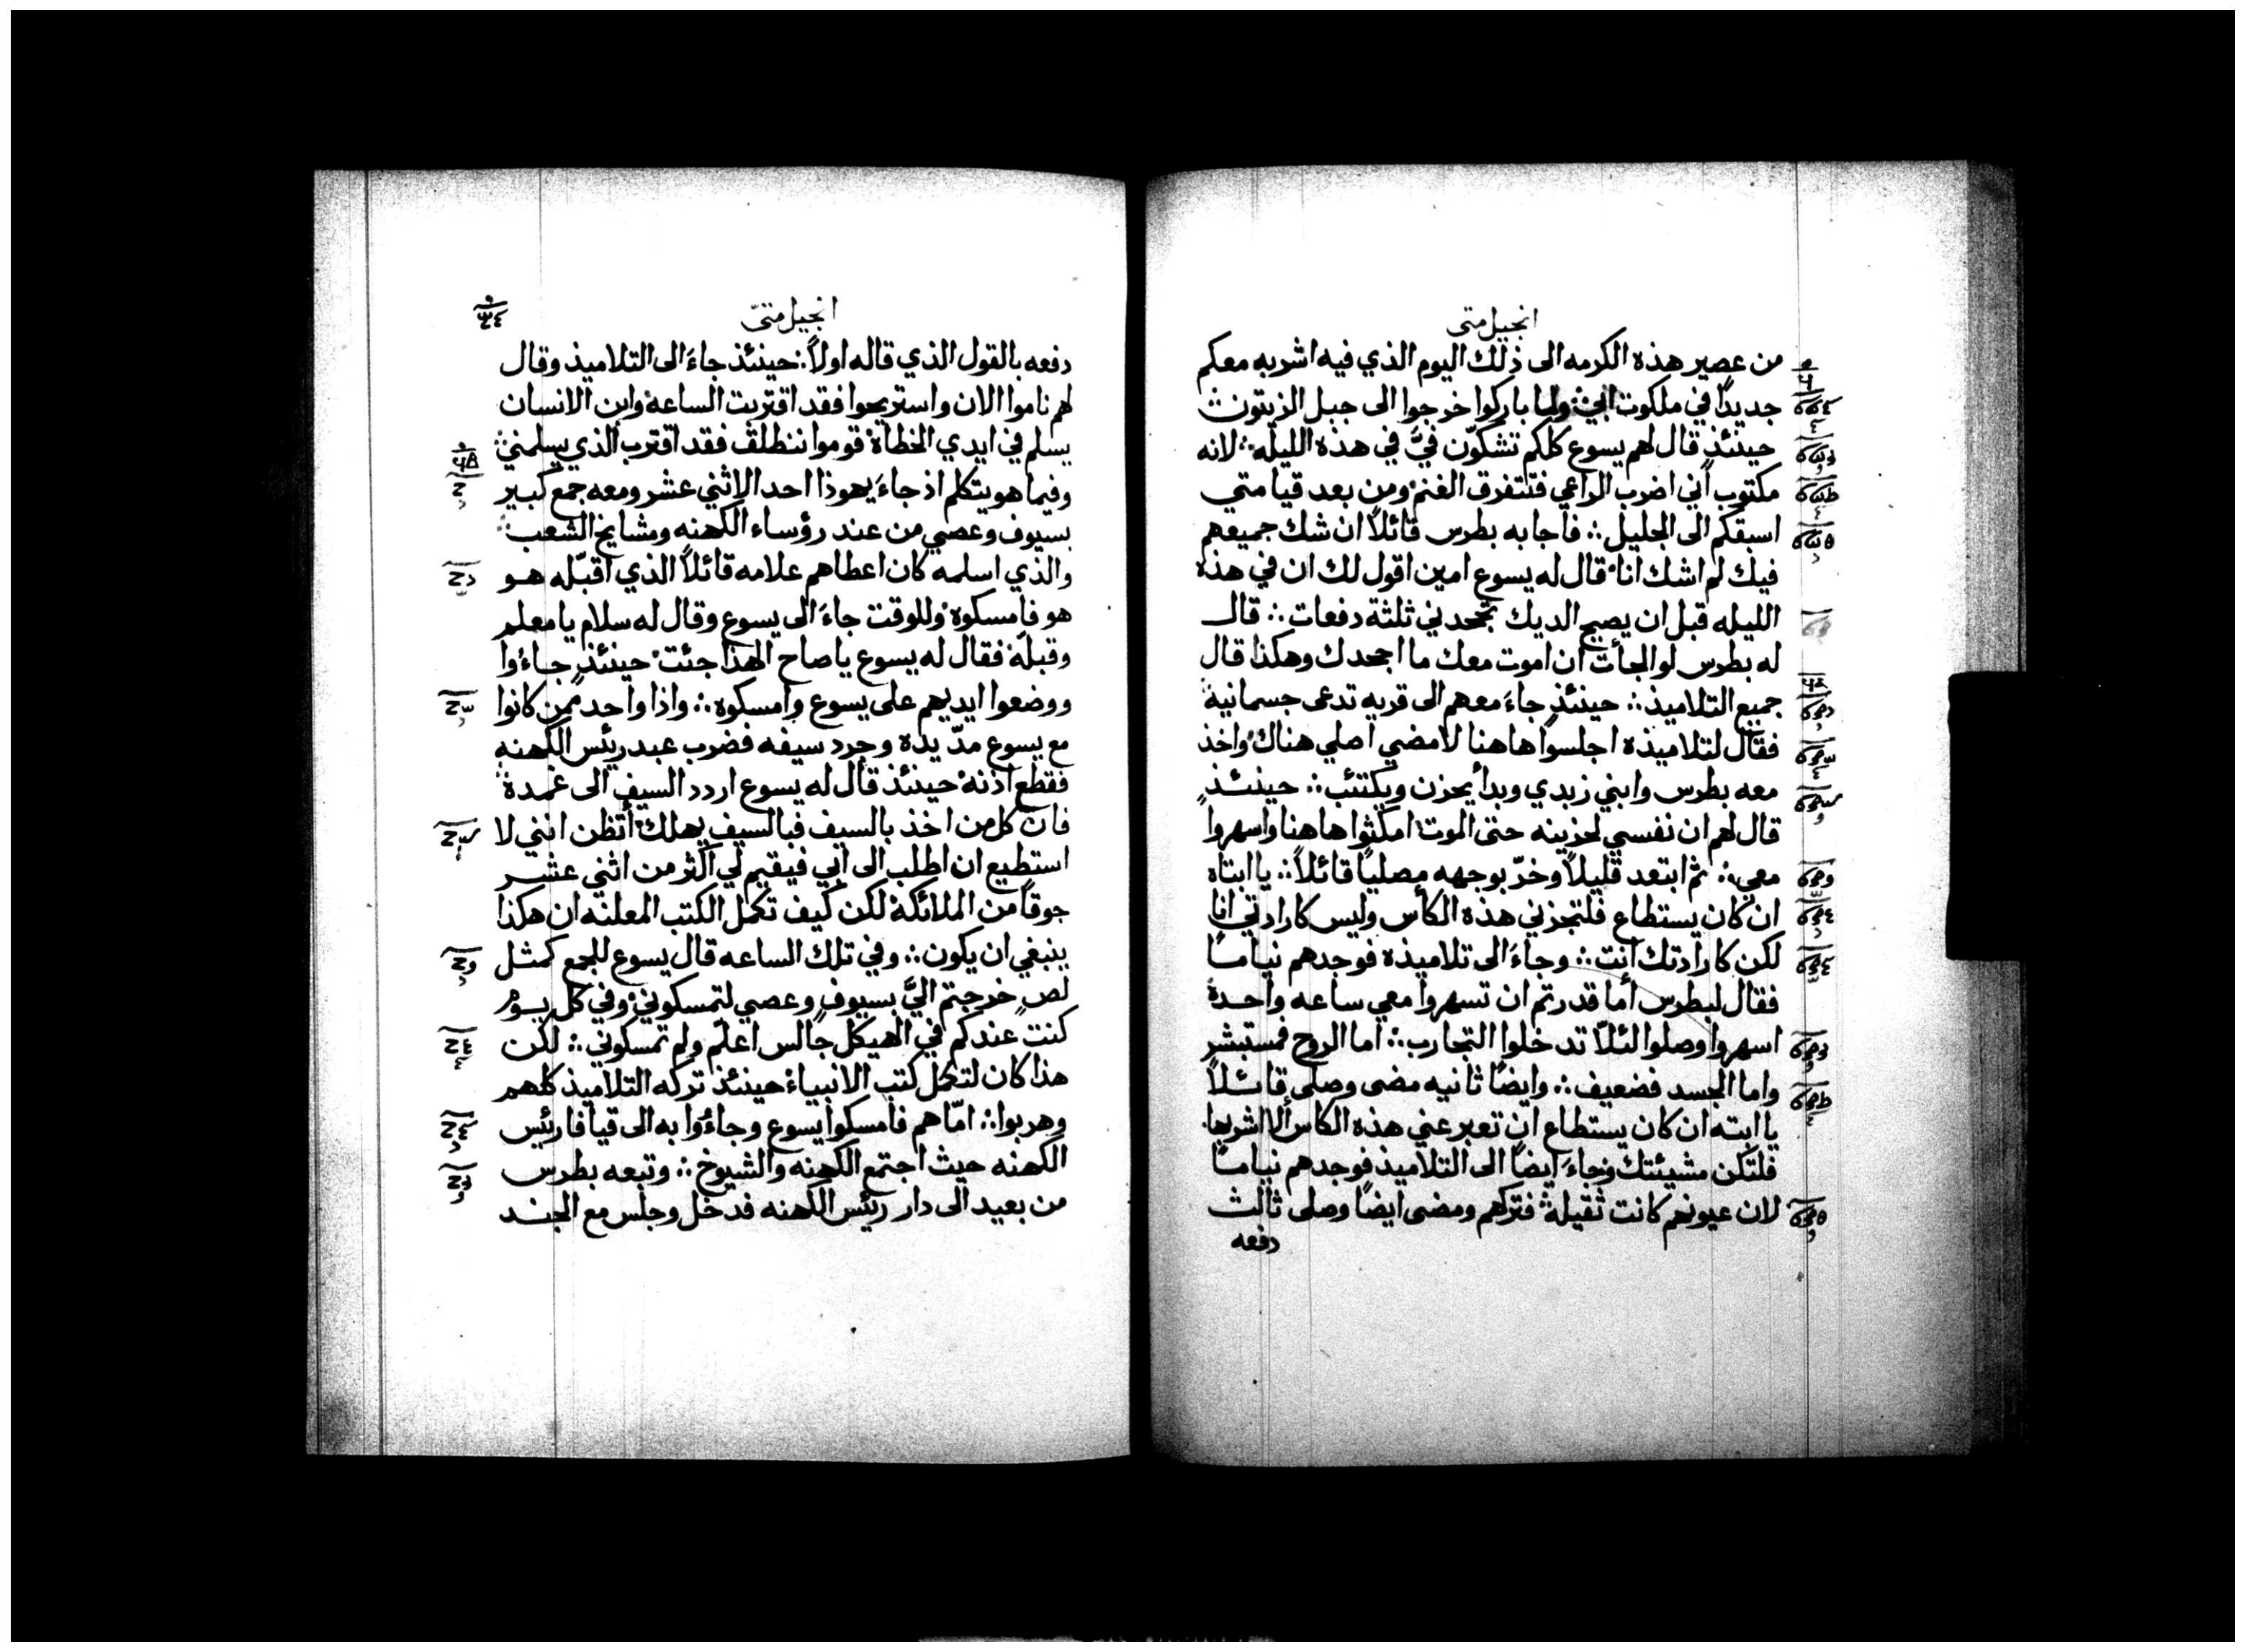 انجيل متى
من عصير هذه الكرمه الى ذلك اليوم الذي فيه اشربه معكم
جديدًا في ملكوت ابي ∴ ولما باركوا خرجوا الى جبل الزيتون ∴
حينئذٍ قال لهم يسوع كلكم تشكّون فيَّ في هذه الليله ∴ لانه
مكتوب أني اضرب الراعي فتتفرق الغنم ومن بعد قيامتي
اسبقكم الى الجليل ∴ فاجابه بطرس قائلاً ان شك جميعهم
فيك لم اشك انا قال له يسوع امين اقول لك ان في هذه
الليله قبل ان يصيح الديك تجحدني ثلثة دفعات ∴ قال
له بطرس لو الجأت ان اموت معك ما اجحدك وهكذا قال
جميع التلاميذ ∴ حينئذٍ جاءَ معهم الى قريه تدعى جسمانية
فقال لتلاميذه اجلسوا هاهنا لامضي اصلي هناك واخذ
معه بطرس وابني زبدي وبدأ يحزن ويكتئب ∴ حينئذٍ
قال لهم ان نفسي لحزينه حتى الموت امكثوا هاهنا واسهروا
معي ∴ ثم ابتعد قليلاً وخرّ بوجهه مصليًا قائلاً ∴ يا ابتاه
ان كان يستطاع فلتجزني هذه الكأس وليس كارادتي انا
لكن كارادتك انت ∴ وجاءَ الى تلاميذه فوجدهم نيامًا
فقال لبطرس أما قدرتم ان تسهروا معي ساعه واحدة
اسهروا وصلوا لئلاّ تدخلوا التجارب ∴ اما الروح فمستبشر
واما الجسد فضعيف ∴ وايضًا ثانيه مضى وصلى قائلاً
يا ابته ان كان يستطاع ان تعبر عني هذه الكاس ألا اشربها
فلتكن مشيئتك وجاءَ ايضًا الى التلاميذ فوجدهم نيامًا
لان عيونهم كانت ثقيلة فتركهم ومضى ايضًا وصلى ثالث
دفعه
انجيل متىّ
دفعه بالقول الذي قاله اولاً ∴ حينئذ جاءَ الى التلاميذ وقال
لهم ناموا الان واستريحوا فقد اقتربت الساعة وابن الانسان
يسلم في ايدي الخطاة قوموا ننطلق فقد اقترب الذي يسلمني ∴
وفيما هو يتكلم اذ جاءَ يهوذا احد الاثني عشر ومعه جمع كبير
بسيوف وعصي من عند رؤساء الكهنه ومشايخ الشعب
والذي اسلمه كان اعطاهم علامه قائلاً الذي اقبّله هو
هو فامسكوه وللوقت جاءَ الى يسوع وقال له سلام يا معلم
وقبلّه فقال له يسوع يا صاح الهذا جئت حينئذٍ جاءُوا
ووضعوا ايديهم على يسوع وامسكوه ∴ واذا واحد ممن كانوا
مع يسوع مدّ يده وجرد سيفه فضرب عبد رئيس الكهنه
فقطع اذنه حينئذ قال له يسوع اردد السيف الى غمدة
فان كل من اخذ بالسيف فبالسيف يهلك أتظن انني لا
استطيع ان اطلب الى ابي فيقيم لي اكثر من اثني عشر
جوقًا من الملائكة لكن كيف تكمل الكتب المعلنه ان هكذا
ينبغي ان يكون ∴ وفي تلك الساعه قال يسوع للجمع كمثل
لص خرجتم اليَّ بسيوف وعصي لتمسكوني وفي كل يوم
كنت عندكم في الهيكل جالس اعلّم ولم تمسكوني ∴ لكن
هذا كان لتكمل كتب الانبياء حينئذ تركه التلاميذ كلهم
وهربوا ∴ امّا هم فامسكوا يسوع وجاءُوا به الى قيافا رئيس
الكهنه حيث اجتمع الكهنه والشيوخ ∴ وتبعه بطرس
من بعيد الى دار رئيس الكهنه فدخل وجلس مع الجند